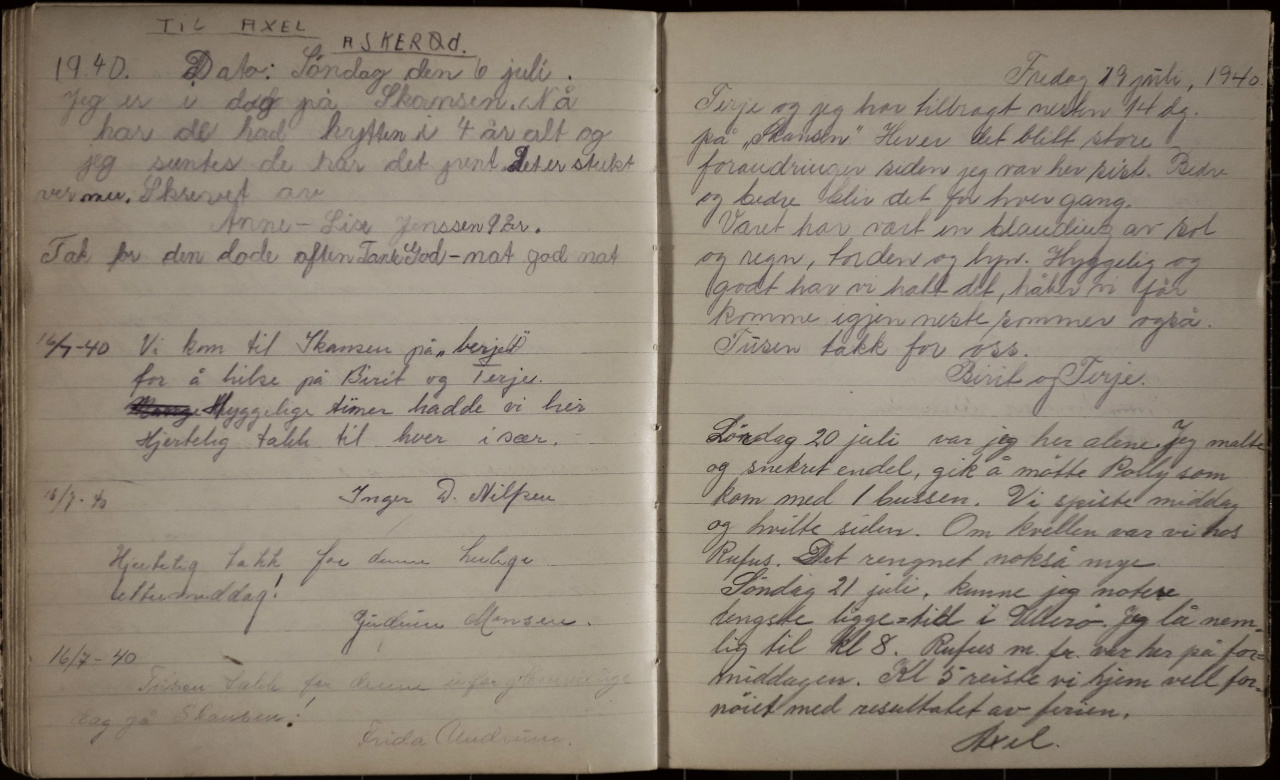 TIL AXEL
ASKERØd.
1940. Dato: Søndag den 6 juli.
Jeg er i dag på Skansen. Nå
har de had hytten i 4 år alt og
jeg suntes de har det pent. Det er stukt
ver mer. Skrevet av
Anne-Lise Jenssen 9 år.
Tak for den dode aften Tank God-nat god nat
16/7-40 Vi kom til Skansen på
for å hilse på Birit og Terje.
Hyggelige timer hadde vi her
Hjertelig takk til hver især.
Inger D. Nilsen
16/7-40
Hjertelig takk for denne herlige
ettermiddag!
Gudrun Monsen.
16/7-40
Tusen takk for denne uforglemmelige
dag på Skansen!
Frida
Fredag 19 juli, 1940.
Terje og jeg har tilbragt nesten 14 dg.
på „Skansen" Her er det blitt store
forandringer siden jeg var her sist. Bedre
og bedre blir det for hver gang.
Været har vært en blanding av sol
og regn, torden og lyn. Hyggelig og
godt har vi hatt det, håber vi får
komme igjen neste sommer også.
Tusen takk for oss.
Birit og Terje.
Lördag 20 juli var jeg her alene. Jeg malte
og snekret endel, gik å møtte Polly som
kom med 1 bussen. Vi spiste middag
og hvilte siden. Om kvellen var vi hos
Rufus. Det rengnet nokså mye.
Søndag 21 juli, kunne jeg notere
lengste ligge=tid i Ulverø. Jeg lå nem-
lig til kl 8. Rufus m. fr. var her på for=
middagen. Kl 5 reiste vi hjem vell for-
nøiet med resultatet av ferien.
Axel.